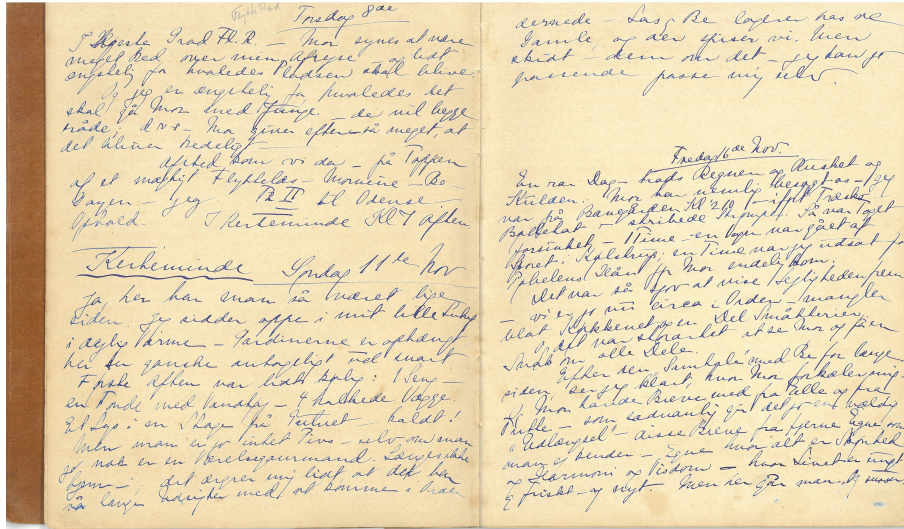 Torsdag 8de
I Højeste Grad Fl. R. – Mor synes at være
meget Ked over min Afrejse – og lidt
ængstelig for hvorledes Pladsen skal blive.
Og jeg er ængstelig for hvorledes det
skal gå Mor med Junge – de vil begge
råde; d.v.s – Mor giver efter – så meget, at
det bliver kedeligt –
Afsted kom vi da – på Toppen
af et mægtigt Flyttelæs – Mornine – Be –
– jeg – På II til Odense –
Ophold I Kerteminde Kl 7 Aften
Kerteminde Søndag 11te Nov
Ja her har man så været lige
siden. Jeg sidder oppe i mit lille
i dejlig Varme – Gardinerne er ophængt
her er ganske antageligt nu snart
Første Aften var lidt kølig: 1 Seng –
en Tønde med Vandfad – 4 kalkede Vægge.
Et Lys i en Stage på Gulvet – koldt!
Men man er jo intet Pivs – selv om man
nok er en Værelsegourmand. Længes ikke
hjem – det ærgrer mig lidt at det har
så lange Udsigter med at komme i Orden
dernede – Las, Be logerer hos de
Gamle, og der spiser vi. Men
skidt – dem om det – jeg kan jo
passende passe mig selv
Fredag 16de Nov.
En rar Dag – trods Regnen og Rusket og
Kulden. Mor har nemlig besøgt os – jeg
var på Banegården Kl 2.10 – iført Træsko
– Så var Toget
forsinket – 1 Time – en Vogn var gået af
Sporet i Kølstrup; en Time var jeg udsat for
Pøbelens Hån før Mor endelig kom.
Det var så sjov at vise Lejligheden frem
– vi er jo nu circa i Orden – mangler
blot Køkkenet og en Del Småtterier.
Og det var storartet at se Mor og få en
Snak om alle Dele.
Efter sen Samtale med Be for længe
siden, ser jeg klart, hvor Mor forkæler mig.
Og Mor havde Breve med fra Palle og fra
Putte – som sædvanlig gør det jo en vældig
"Udlængsel" – disse Breve fra fjerne Egne som
man ej kender – Egne hvor alt er Skønhed
og Harmoni og Visdom – hvor Livet er ungt
og friskt – og nyt. Men her går man. Og